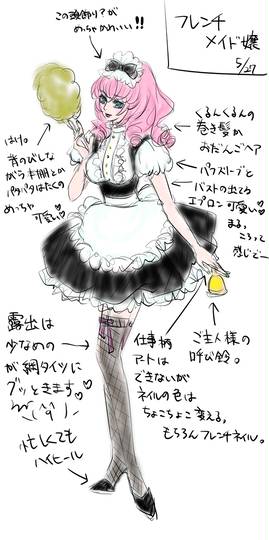 フレンチ
メイド嬢
5/27
この頭飾り?が
めっちゃかわいい!!
くるんくるんの
巻き髪か
おだんごヘア
パフスリーブと
バストの出てる
エプロン可愛い♡
まる、
ころって
感じで〜
はけ。
背のびしな
がら本棚とか
パタパタはたくの
めっちゃ
可愛い♡
露出は
少なめの
が網タイツに
グッときます♡
忙しくても
ハイヒール
仕事柄
アートは
できないが
ネイルの色は
ちょこちょこ変える。
もちろんフレンチネイル。
ご主人様の
呼び鈴。